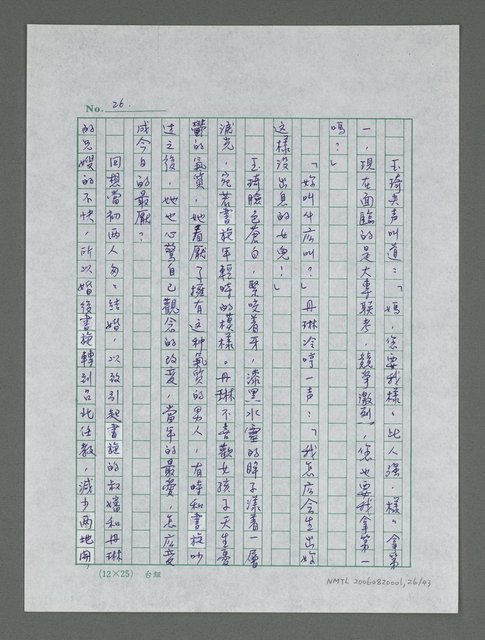 No. 26.
玉琦失声叫道:「媽,您要我樣々比人強,樣々拿第
一,現在面臨的是大專联考,競爭激烈,您也要我拿第一
嗎?」
「妳叫什庅叫?」丹琳冷哼一声:「我怎庅会生出妳
這樣沒出息的女兒!」
玉琦臉色蒼白,緊咬着牙,漆黑水靈的眸子漾着一層
淚光,宛若書旋年輕時的模樣。丹琳不喜歡女孩子天生憂
鬱的氣質,她看厭了擁有这种氣質的男人,有時和書旋吵
过之後,她也心驚自己觀念的改变,當年的最愛,怎庅变
成今日的最厭?
回想當初两人匆々結婚,以致引起書旋的叔嬸和丹琳
的兄嫂的不快,所以婚後書旋轉到台北任教,減少两地間
(12×25) 台組
NMTL 20060820001, 26/43